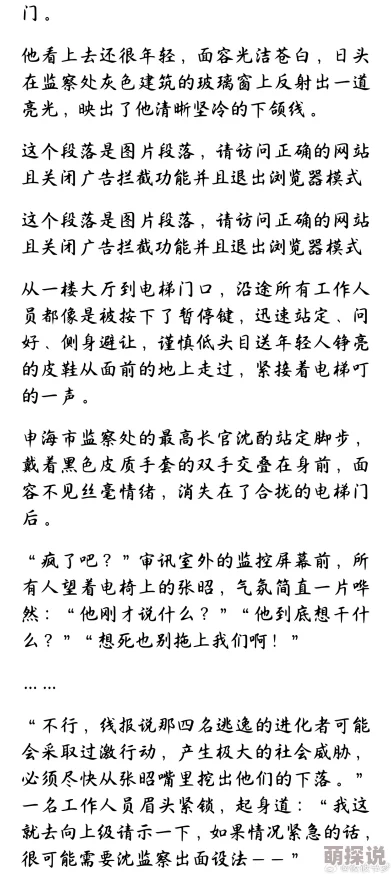 门。
他看上去还很年轻，面容光洁苍白，日头
在监察处灰色建筑的玻璃窗上反射出一道
亮光，映出了他清晰坚冷的下颌线。
这个段落是图片段落，请访问正确的网站
且关闭广告拦截功能并且退出浏览器模式
这个段落是图片段落，请访问正确的网站
且关闭广告拦截功能并且退出浏览器模式
从一楼大厅到电梯门口，沿途所有工作人
员都像是被按下了暂停键，迅速站定、问
好、侧身避让，谨慎低头目送年轻人铮亮
的皮鞋从面前的地上走过，紧接着电梯叮
的一声。
申海市监察处的最高长官沈酌站定脚步，
戴着黑色皮质手套的双手交叠在身前，面
容不见丝毫情绪，消失在了合拢的电梯门
后。
“疯了吧？”审讯室外的监控屏幕前，所
有人望着电椅上的张昭，气氛简直一片哗
然：“他刚才说什么？”“他到底想干什
么？”“想死也别拖上我们啊！”
……
“不行，线报说那四名逃逸的进化者可能
会采取过激行动，产生极大的社会威胁，
必须尽快从张昭嘴里挖出他们的下落。”
一名工作人员眉头紧锁，起身道：“我这
就去向上级请示一下，如果情况紧急的话，
很可能需要沈监察出面设法——”
萌探说